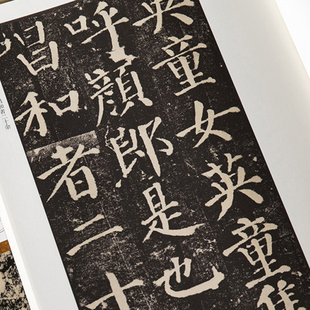 英童女英童集
呼顏郎是也
和者二十